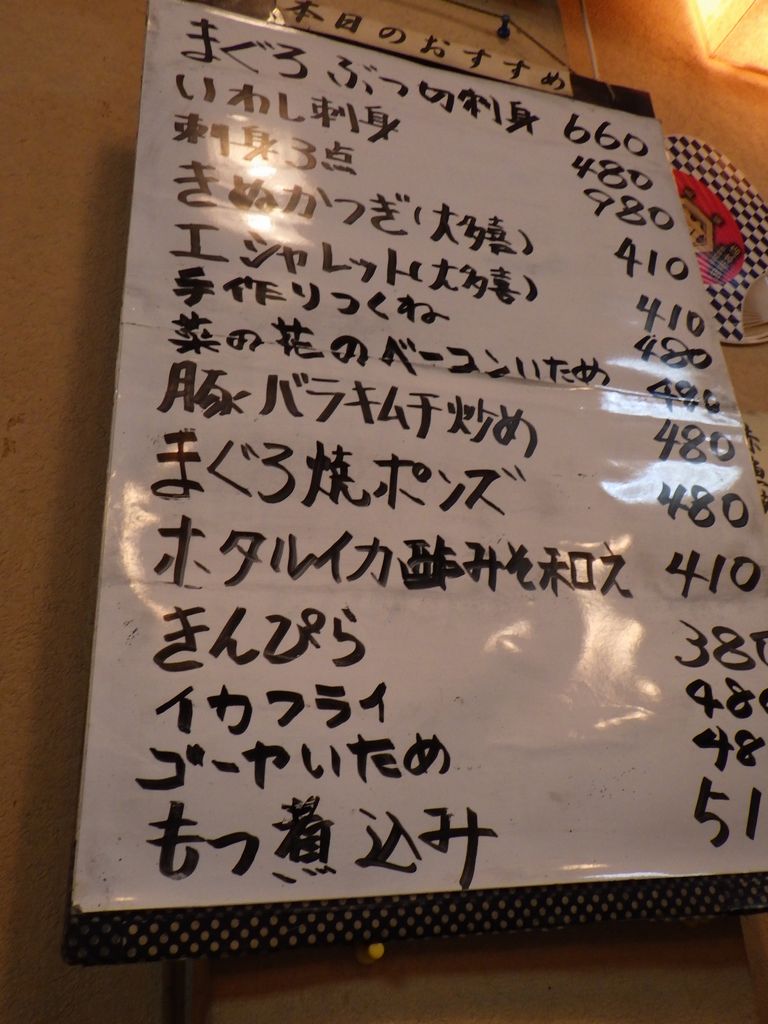 本日のおすすめ
まぐろぶつ切刺身 660
いわし刺身 480
刺身3点 980
きぬかつぎ(大多喜) 410
エシャレット(大多喜) 410
手作りつくね 480
菜の花のベーコンいため 480
豚バラキムチ炒め 480
まぐろ焼ポンズ 480
ホタルイカ酢みそ和え 410
きんぴら 380
イカフライ 480
ゴーヤいため 48
もつ煮込み 51